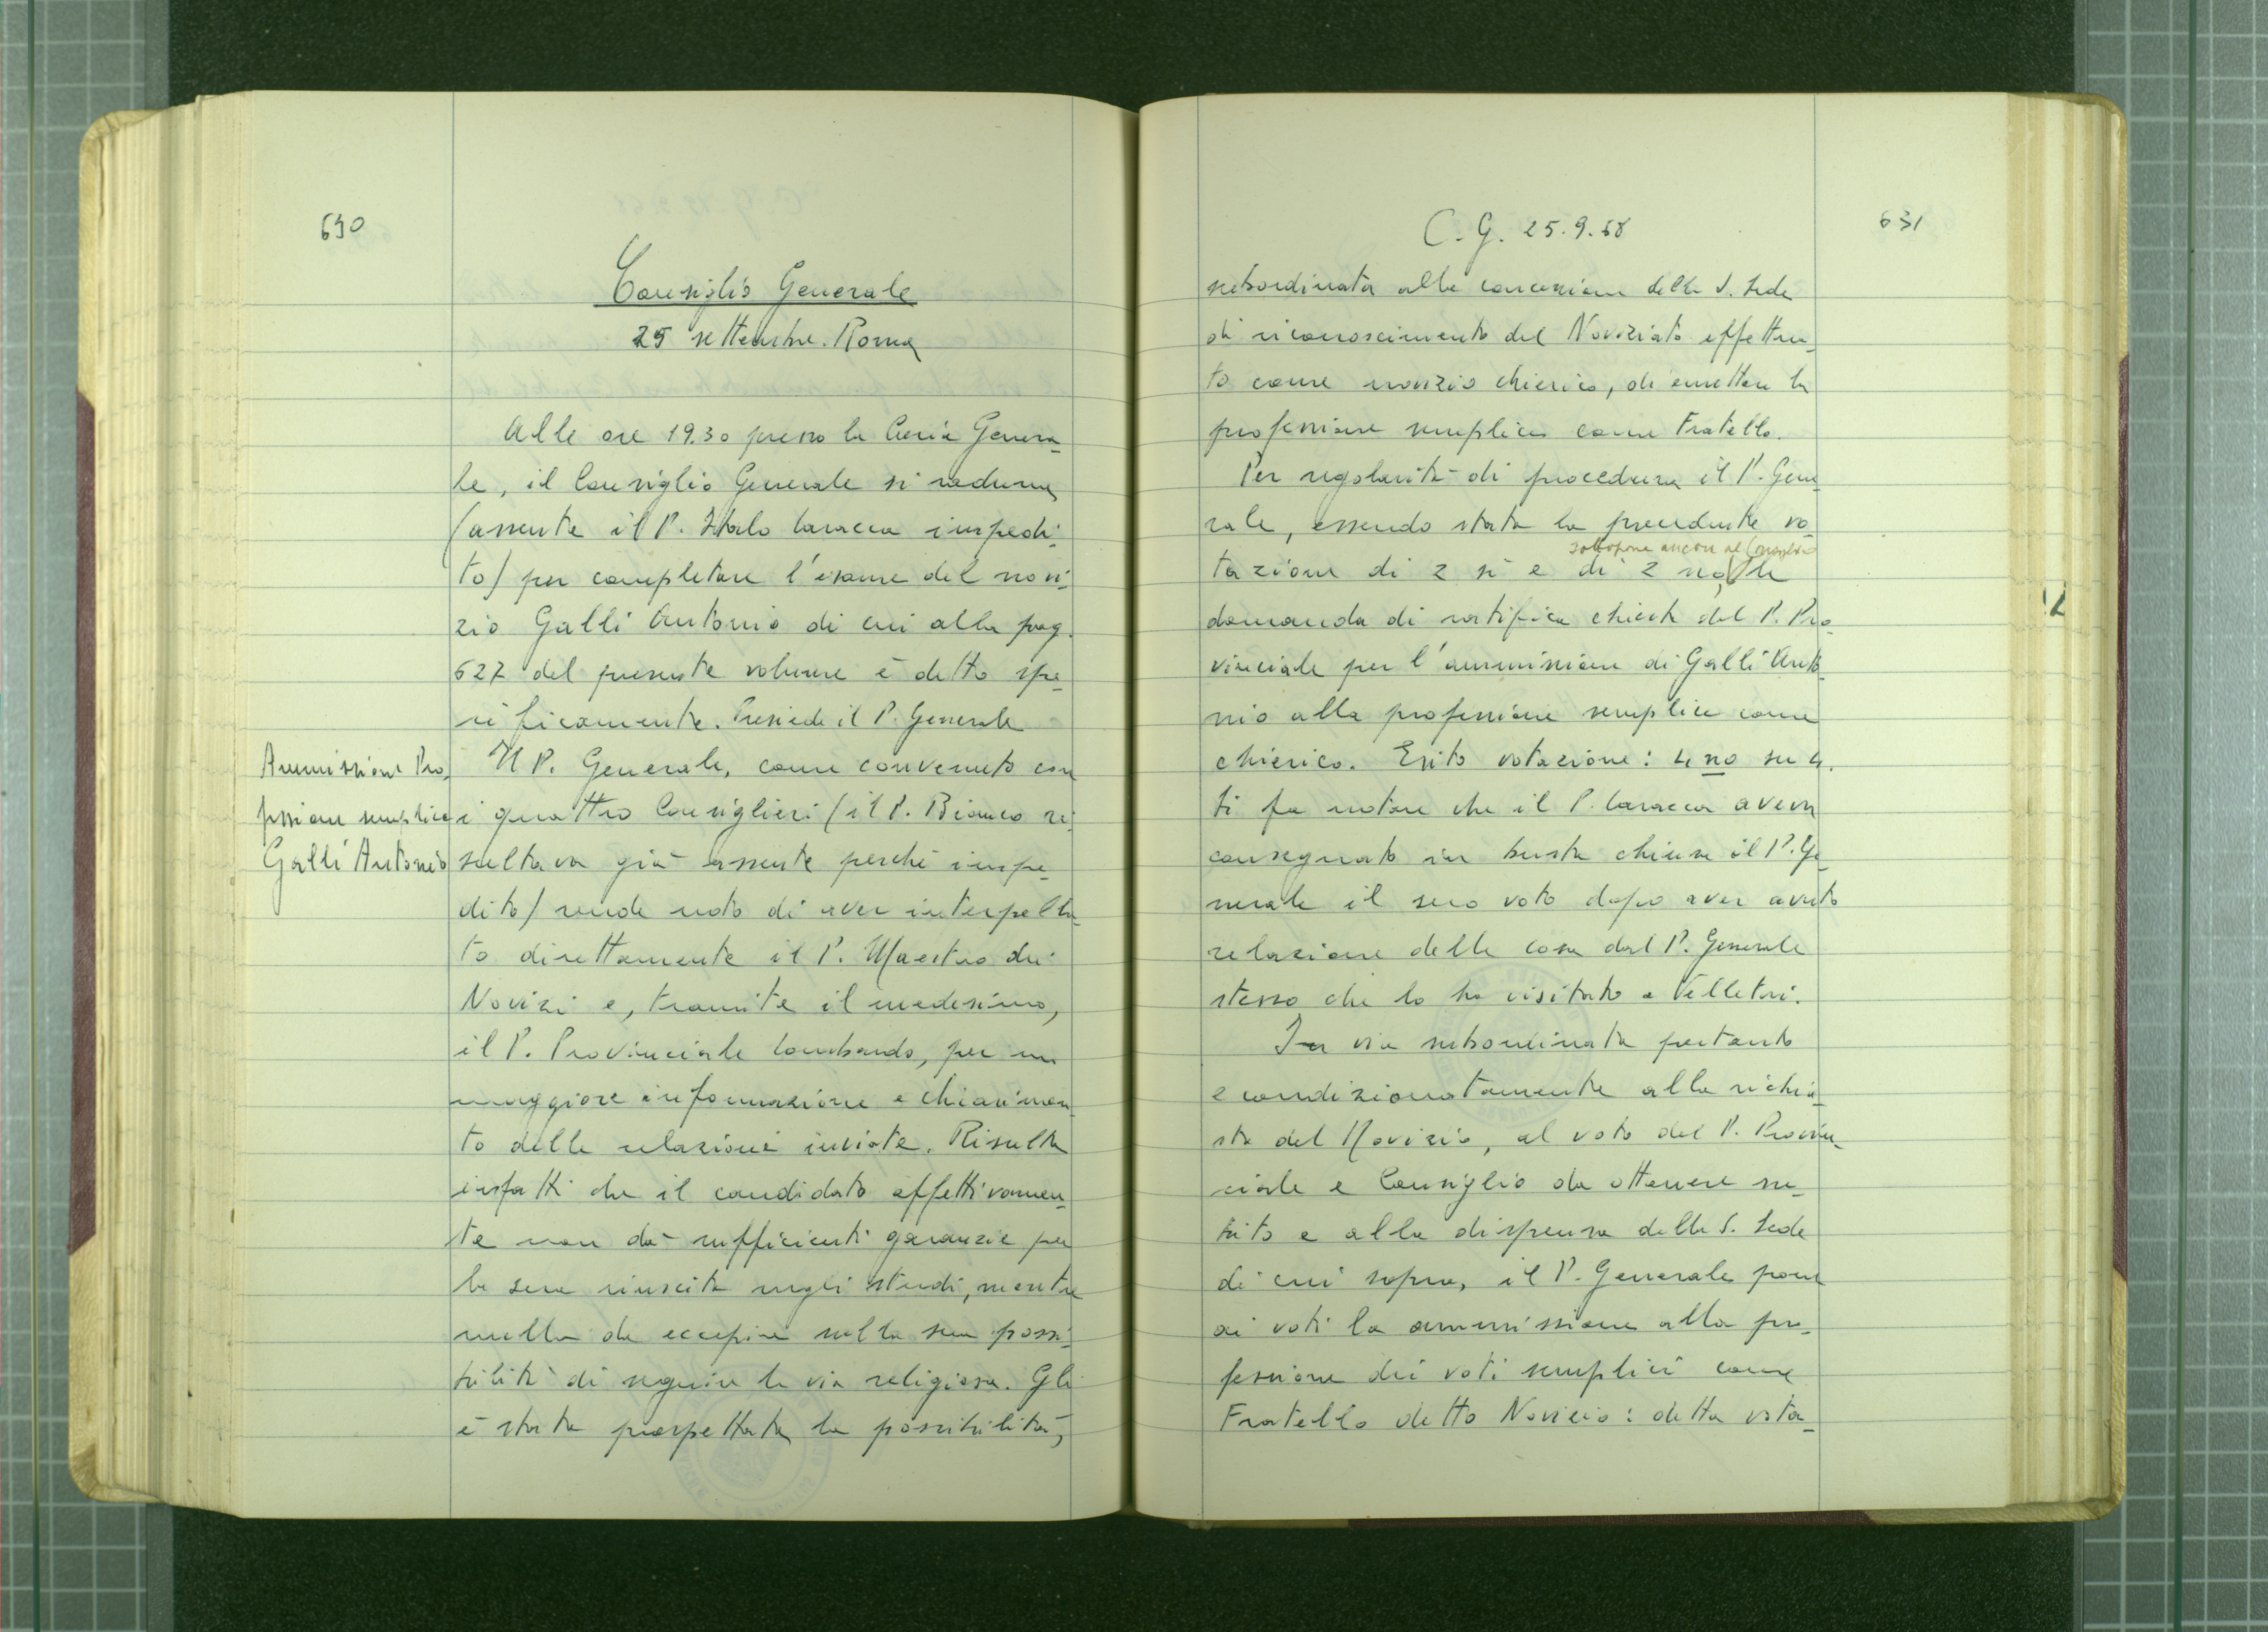 630
Consiglio Generale
25 settembre. Roma
Alle ore 19.30 presso la Curia Genera-
le, il Consiglio Generale si raduna
(assente il P. Italo Laracca impedi-
to) per completare l'esame del novi-
zio Galli Antonio di cui alla pag.
627 del presente volume è detto spe-
cificamente. Presiede il P. Generale
Ammissione Pro-
fessione semplice
Galli Antonio
Il P. Generale, come convenuto con
i quattro Consiglieri (il P. Bianco ri-
sultava già assente perché impe-
dito) rende noto di aver interpella-
to direttamente il P. Maestro dei
Novizi e, tramite il medesimo,
il P. Provinciale lombardo, per una
maggiore informazione e chiarimen-
to delle relazioni inviate. Risulta
infatti che il candidato effettivamen-
te non dà sufficienti garanzie per
la sua riuscita negli studi, mentre
nulla da eccepire sulla sua possi-
bilità di seguire la via religiosa. Gli
è stata prospettata la possibilità,
C. G. 25.9.68
631
subordinata alla concessione della S. Sede
di riconoscimento del Noviziato effettua-
to come novizio chierico, di emettere la
professione semplice come Fratello.
Per regolarità di procedura il P. Gene-
rale, essendo stata la precedente vo-
sottopone ancora al Consiglio
tazione di 2 sì e di 2 no, la
domanda di ratifica chiesta dal P. Pro-
vinciale per l'ammissione di Galli Anto-
nio alla professione semplice come
chierico. Esito votazione: 4 no su 4.
Si fa notare che il P. Laracca aveva
consegnato in busta chiusa il P. Ge-
nerale il suo voto dopo aver avuto
relazione della cosa dal P. Generale
stesso che lo ha visitato a Velletri.
In via subordinata pertanto
e condizionatamente alla richie-
sta del Novizio, al voto del P. Provin-
ciale e Consiglio da ottenere su-
bito e alla dispensa della S. Sede
di cui sopra, il P. Generale pone
ai voti la ammissione alla pro-
fessione dei voti semplici come
Fratello detto Novizio: detta vota-